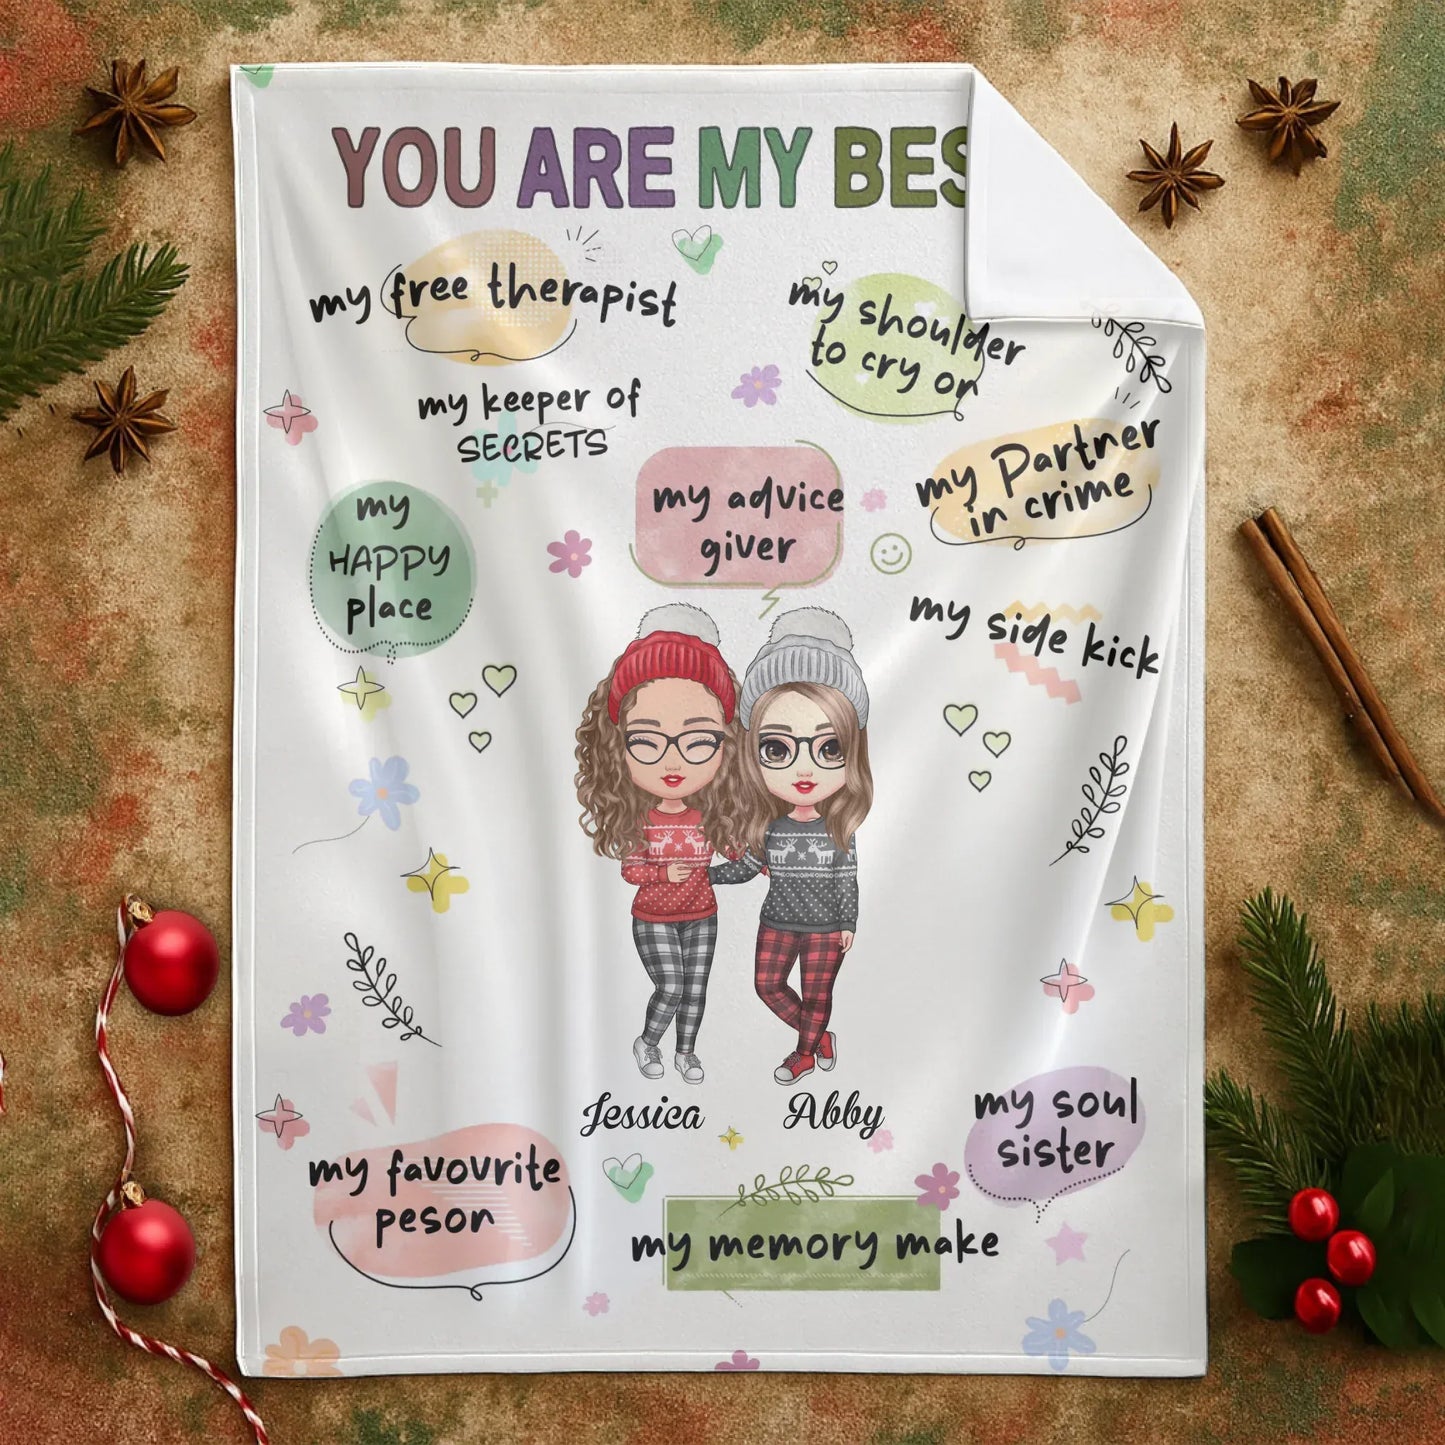 YOU ARE MY BES
my free therapist
my shoulder
to cry on
my keeper of
SECRETS
my Partner
in crime
my advice
giver
my
HAPPY
place
my side kick
Jessica
Abby
my soul
sister
my favovrite
peson
my memory make